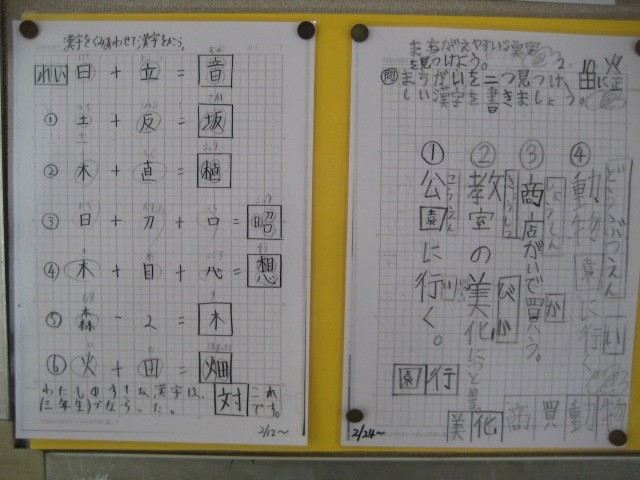 漢字をくみ合わせて漢字を作ろう。
れい 日 + 立 = 音
① 土 + 反 = 坂
② 木 + 直 = 植
③ 日 + 刀 + 口 = 昭
④ 木 + 目 + 心 = 想
⑤ 森 - 2 = 木
⑥ 火 + 田 = 畑
わたしのすきな漢字は、
(三年生)でならった。
対
これです。
2/12〜
まちがえやすい漢字
を見つけよう。
問 まちがいを二つ見つけ
しい漢字を書きましょう。
① 公園に行く。
こうえん
② 教室の美化につと
きょうしつ
びか
③ 商店がいで買う。
しょうてん
か
④ 動物園に行く。
どうぶつえん
い
園 行
美 化 商 買 動 物
2/24〜